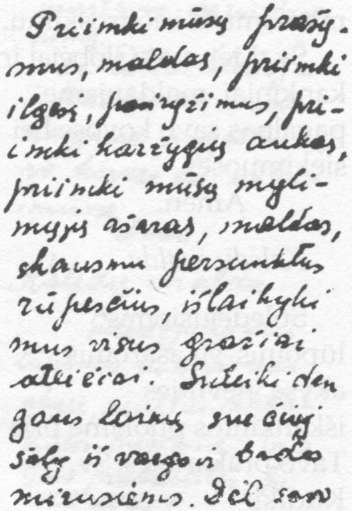 Priimki mūsų prašy-
mus, maldas, priimki
ilgesį, pasiryžimus, pri-
imki karžygių aukas,
priimki mūsų myli-
mųjų ašaras, maldas,
skausmu persunktus
rūpesčius, išlaikyki
mus visus gražiai
ateičiai. Suteiki dan
gaus laimę svečioj
šaly iš vargo ir bado
mirusiems. Dėl savo